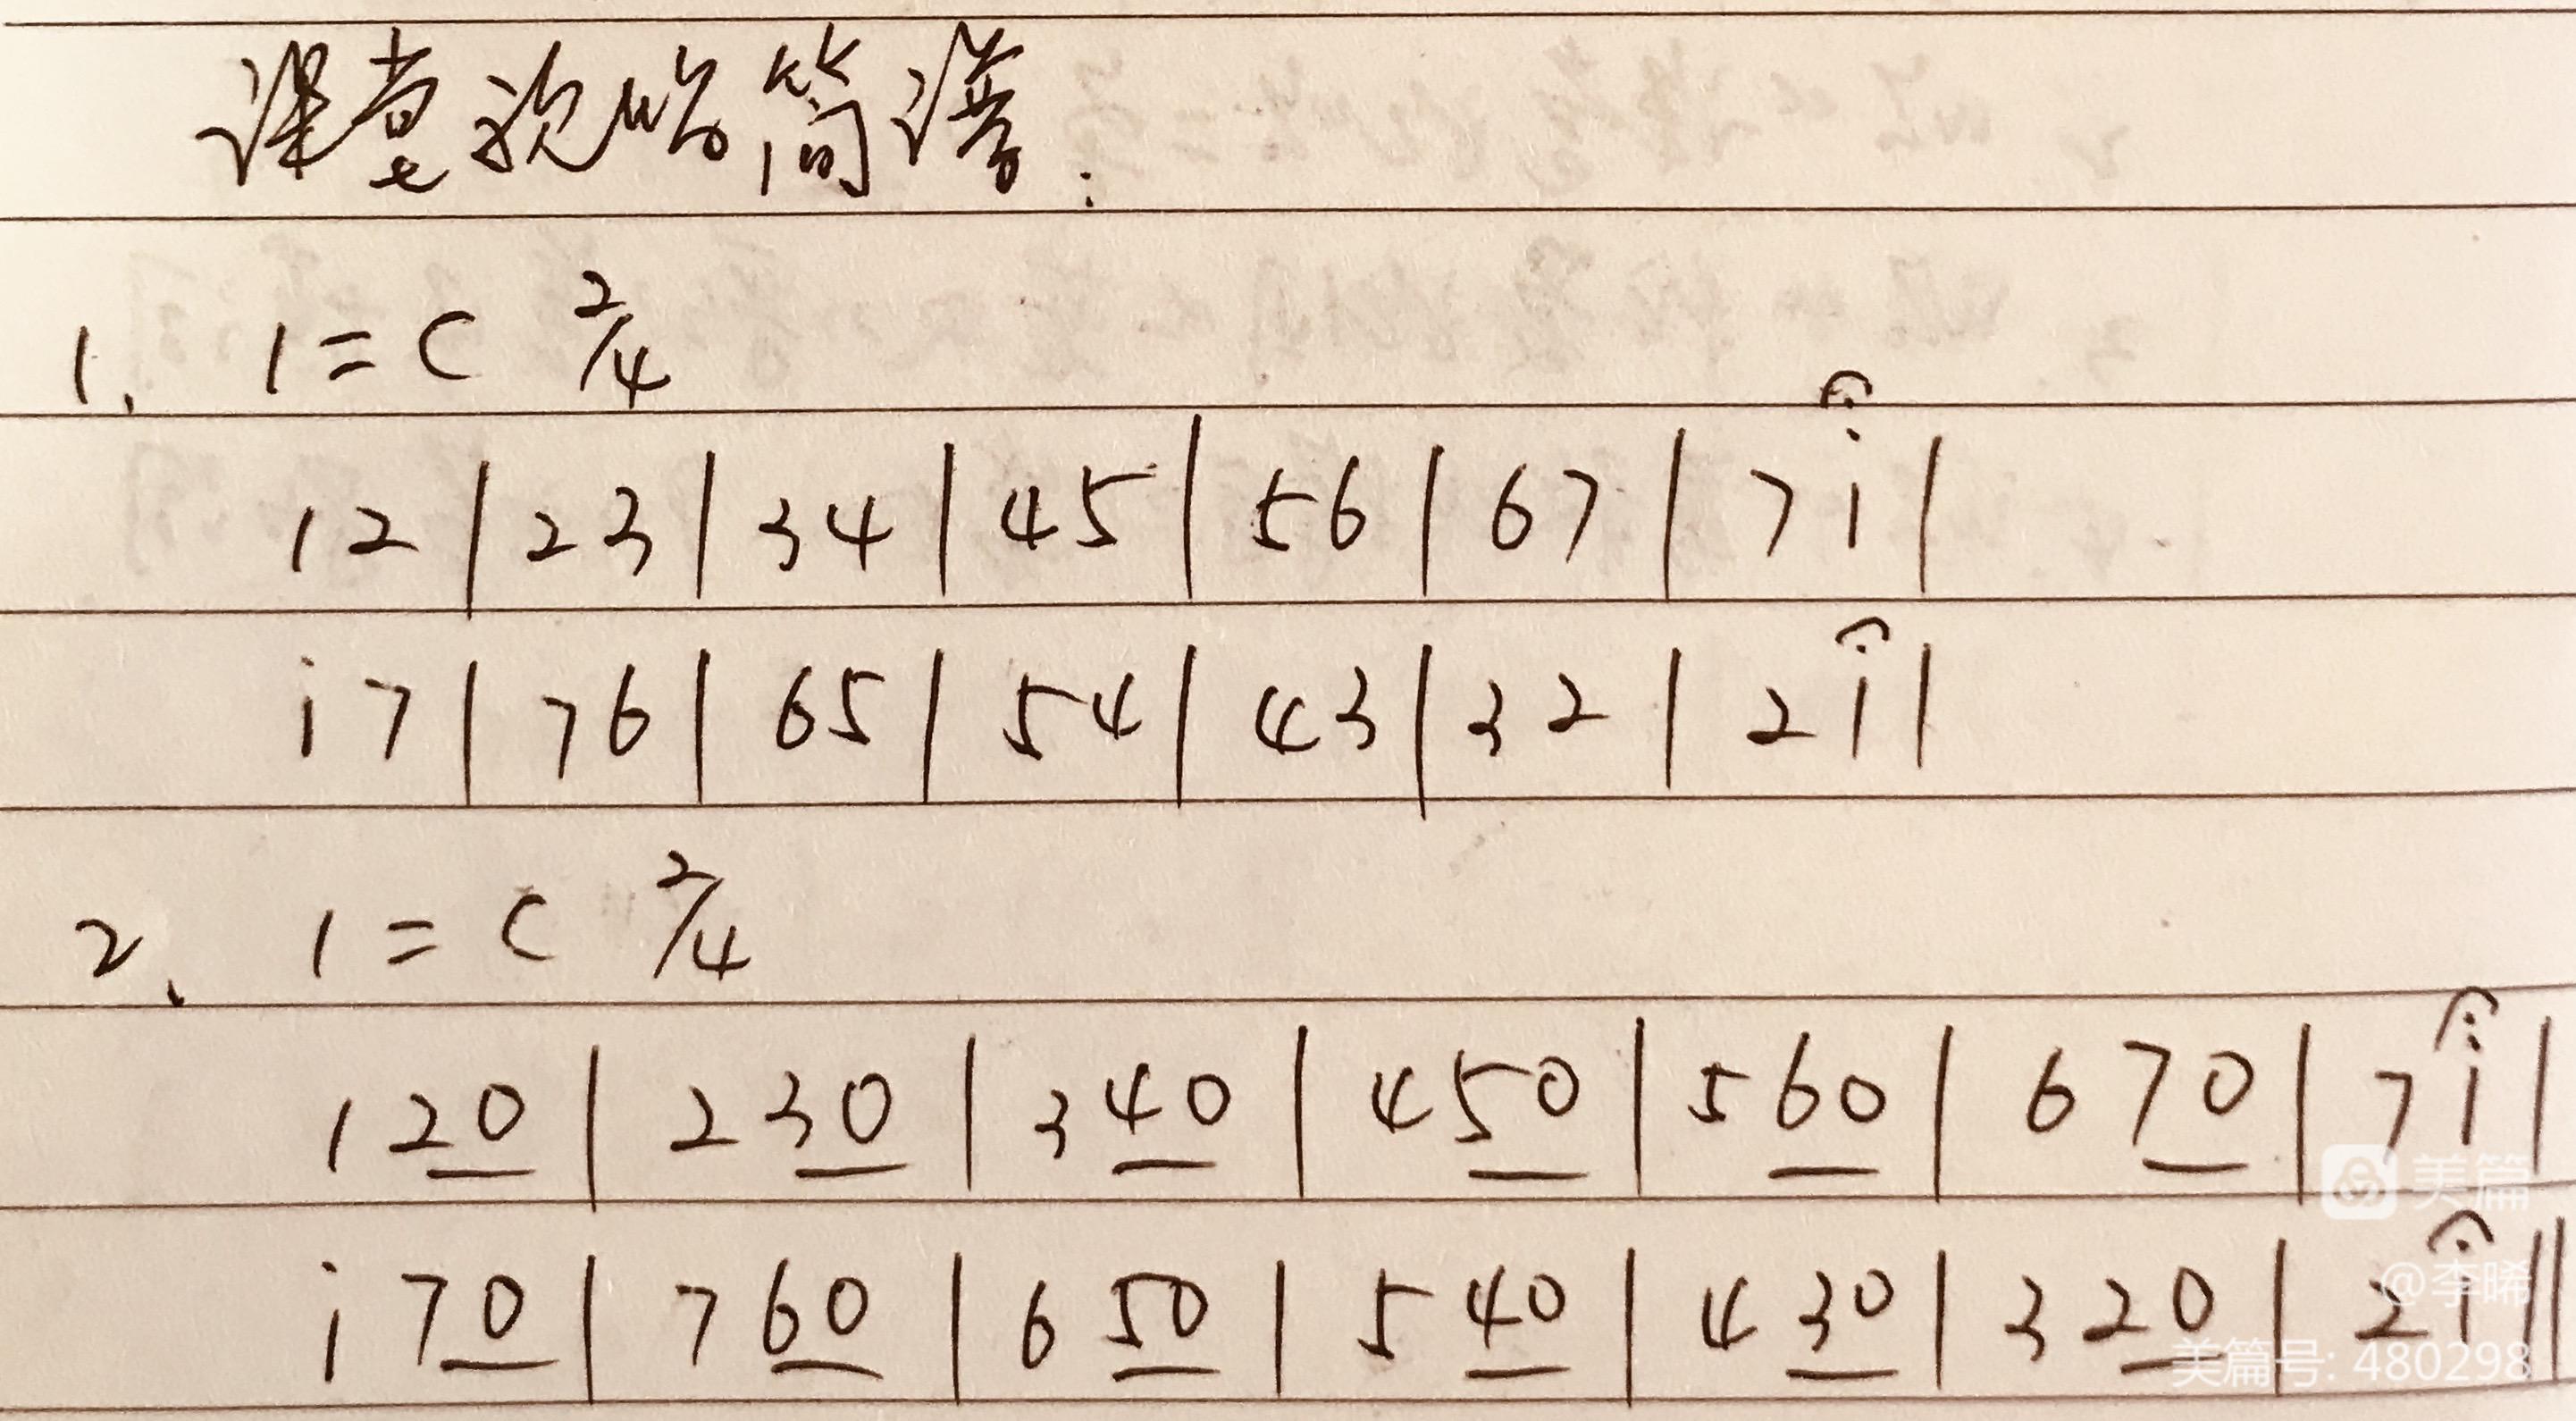 课堂视唱简谱:
1. 1=C 2/4
12|23|34|45|56|67|7i̇|
i̇7|76|65|54|43|32|21|
2. 1=C 2/4
120|230|340|450|560|670|7i̇|
i̇70|760|650|540|430|320|21‖
美篇
@李晞
美篇号: 480298